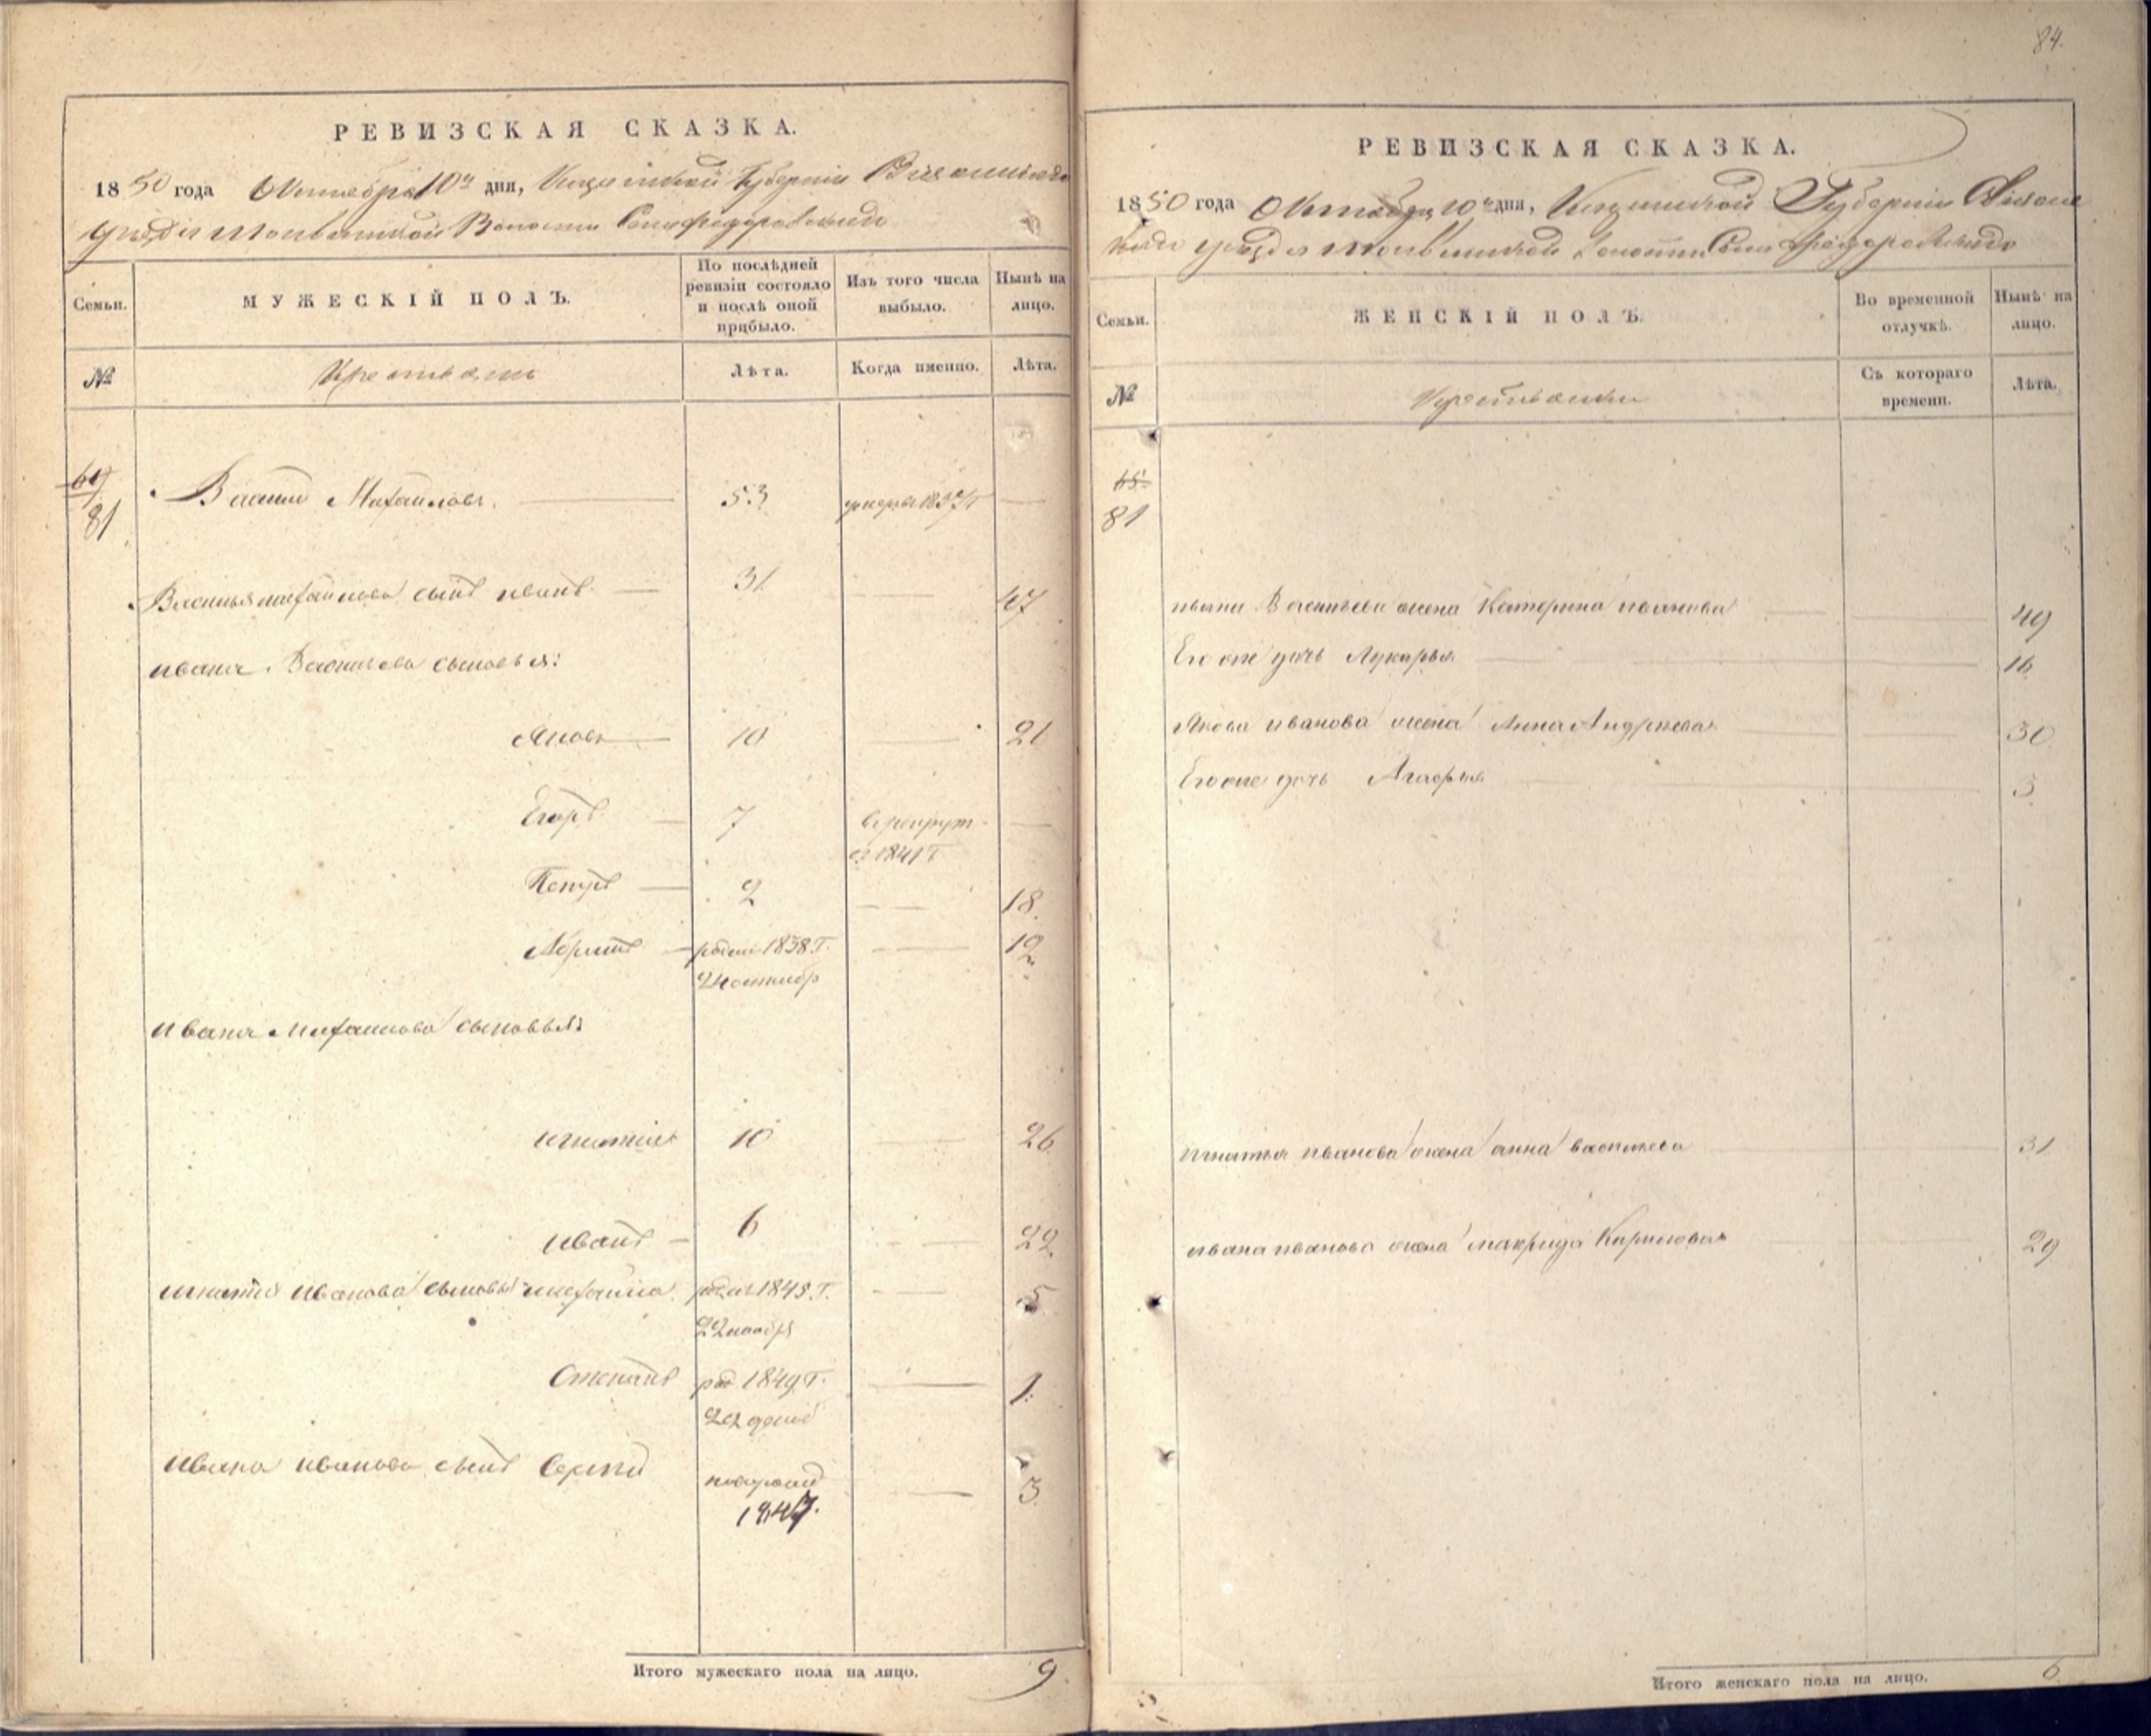 84.
РЕВИЗСКАЯ СКАЗКА.
1850 года Октября 10го дня, Казанской Губернии
уезда Волости Села Федоровскаго
Семьи.
МУЖЕСКІЙ ПОЛЪ.
По послѣдней ревизіи состояло и послѣ оной прибыло.
Изъ того числа выбыло.
Нынѣ на лицо.
№
Крестьяне
Лѣта.
Когда именно.
Лѣта.
81
Василий Михайловъ. 53
Василья михайлова сынъ иванъ 31 47
ивана Васильева сыновья:
Яковъ 10 21
Егоръ 7 в рекрут
1841 г
Петръ 2 18.
родил 1838 г. 12
ивана Михайлова сыновья:
игнатий 10 26
иванъ 6 22.
игнатия иванова сыновья михайла род 1845 г. 5
22 ноябр
Степанъ род 1849 г. 1.
ивана иванова сынъ Сергей 3
1847.
Итого мужескаго пола на лицо. 9.
РЕВИЗСКАЯ СКАЗКА.
1850 года Октября 10го дня, Казанской Губернии
уезда волости Села Федоровскаго
Семьи.
ЖЕНСКІЙ ПОЛЪ.
Во временной отлучкѣ.
Нынѣ на лицо.
№
Крестьянки
Съ котораго времени.
Лѣта.
65.
81
ивана Васильева жена Катерина иванова 49
Его же дочь Лукарья 16
Якова иванова жена Анна Андреева 30
Его же дочь 3
игнатья иванова жена анна васильева 31
ивана иванова жена макрида Кирилова 29
Итого женскаго пола на лицо. 6